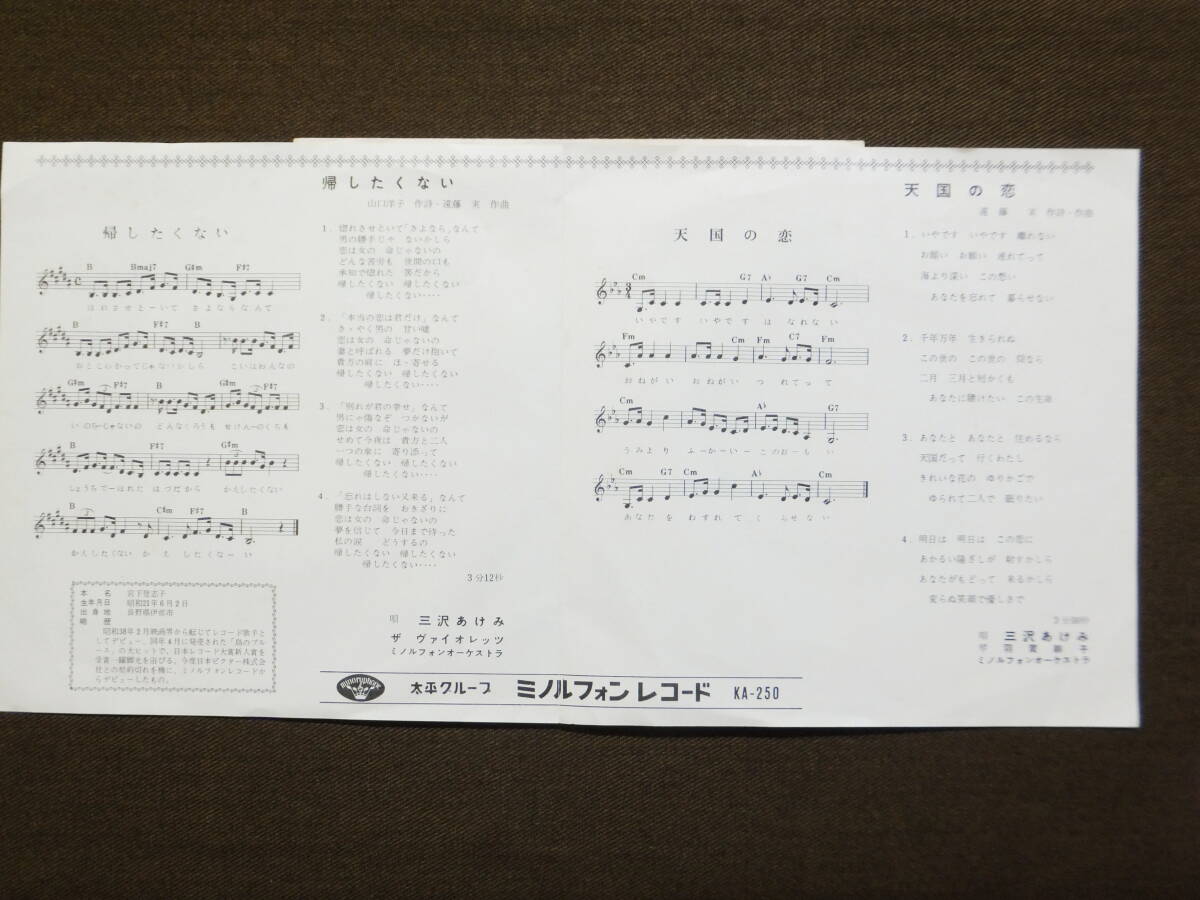 帰したくない
B Bmaj7 G#m F#7
ほれさせとーいて さよならなんて
B F#7 B
おとこのかってじゃないかしら こいはおんなの
G#m F#7 B G#m F#7
いのちーじゃないの どんなくろうも せけんーのくちも
B G#m
しょうちでーほれた はづだから かえしたくない
B C#m F#7 B
かえしたくない かえ したくなーい
本名 宮下登志子
生年月日 昭和21年6月2日
出身地 長野県伊那市
略歴
昭和38年2月映画界から転じてレコード歌手と
してデビュー。同年4月に発売された「島のブル
ース」の大ヒットで、日本レコード大賞新人賞を
受賞一躍脚光を浴びる。今度日本ビクター株式会
社との契約切れを機に、ミノルフォンレコードか
らデビューしたもの。
帰したくない
山口洋子 作詩・遠藤 実 作曲
1. 惚れさせといて「さよなら」なんて
男の勝手じゃ ないかしら
恋は女の 命じゃないの
どんな苦労も 世間の口も
承知で惚れた 筈だから
帰したくない 帰したくない
帰したくない‥‥
2. 「本当の恋は君だけ」なんて
さゝやく男の 甘い嘘
恋は女の 命じゃないの
妻と呼ばれる 夢だけ抱いて
貴方の肩に ほゝ寄せる
帰したくない 帰したくない
帰したくない‥‥
3. 「別れが君の幸せ」なんて
男にゃ傷なぞ つかないが
恋は女の 命じゃないの
せめて今夜は 貴方と二人
一つの傘に 寄り添って
帰したくない 帰したくない
帰したくない‥‥
4. 「忘れはしない又来る」なんて
勝手な台詞を おきざりに
恋は女の 命じゃないの
夢を信じて 今日まで待った
私の涙 どうするの
帰したくない 帰したくない
帰したくない‥‥
3分12秒
唄 三沢あけみ
ザ ヴァイオレッツ
ミノルフォンオーケストラ
minoruphone 太平グループ ミノルフォンレコード KA-250
天国の恋
Cm G7 A♭ G7 Cm
いやです いやです は なれない
Fm Cm Fm C7 Fm
おねがい おねがい つ れてって
Cm A♭ G7
うみより ふーかーいー このおーも い
Cm G7 Cm A♭ Cm
あなたを わすれてく らせない
天国の恋
遠藤 実 作詩・作曲
1. いやです いやです 離れない
お願い お願い 連れてって
海より深い この想い
あなたを忘れて 暮らせない
2. 千年万年 生きられぬ
この世の この世の 間なら
二月 三月と短かくも
あなたに賭けたい この生命
3. あなたと あなたと 住めるなら
天国だって 行くわたし
きれいな花の ゆりかごで
ゆられて二人で 眠りたい
4. 明日は 明日は この恋に
あかるい陽ざしが 射すかしら
あなたがもどって 来るかしら
変らぬ笑顔で優しさで
唄 三沢あけみ
ミノルフォンオーケストラ